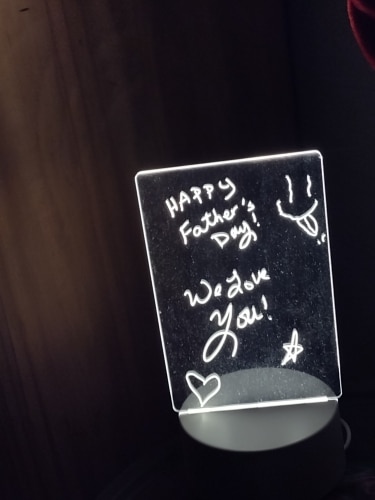 HAPPY
Father's
Day!
We Love
You!